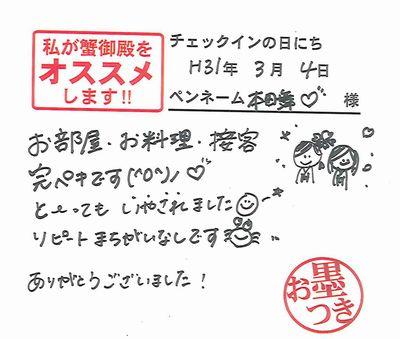 私が蟹御殿を
オススメ
します!!
チェックインの日にち
H31年 3月 4日
ペンネーム 本田舞♡ 様
お部屋・お料理・接客
完ペキです(^o^)ノ♡
とーっても いやされました
リピートまちがいなしです
ありがとうございました!
お墨
つき